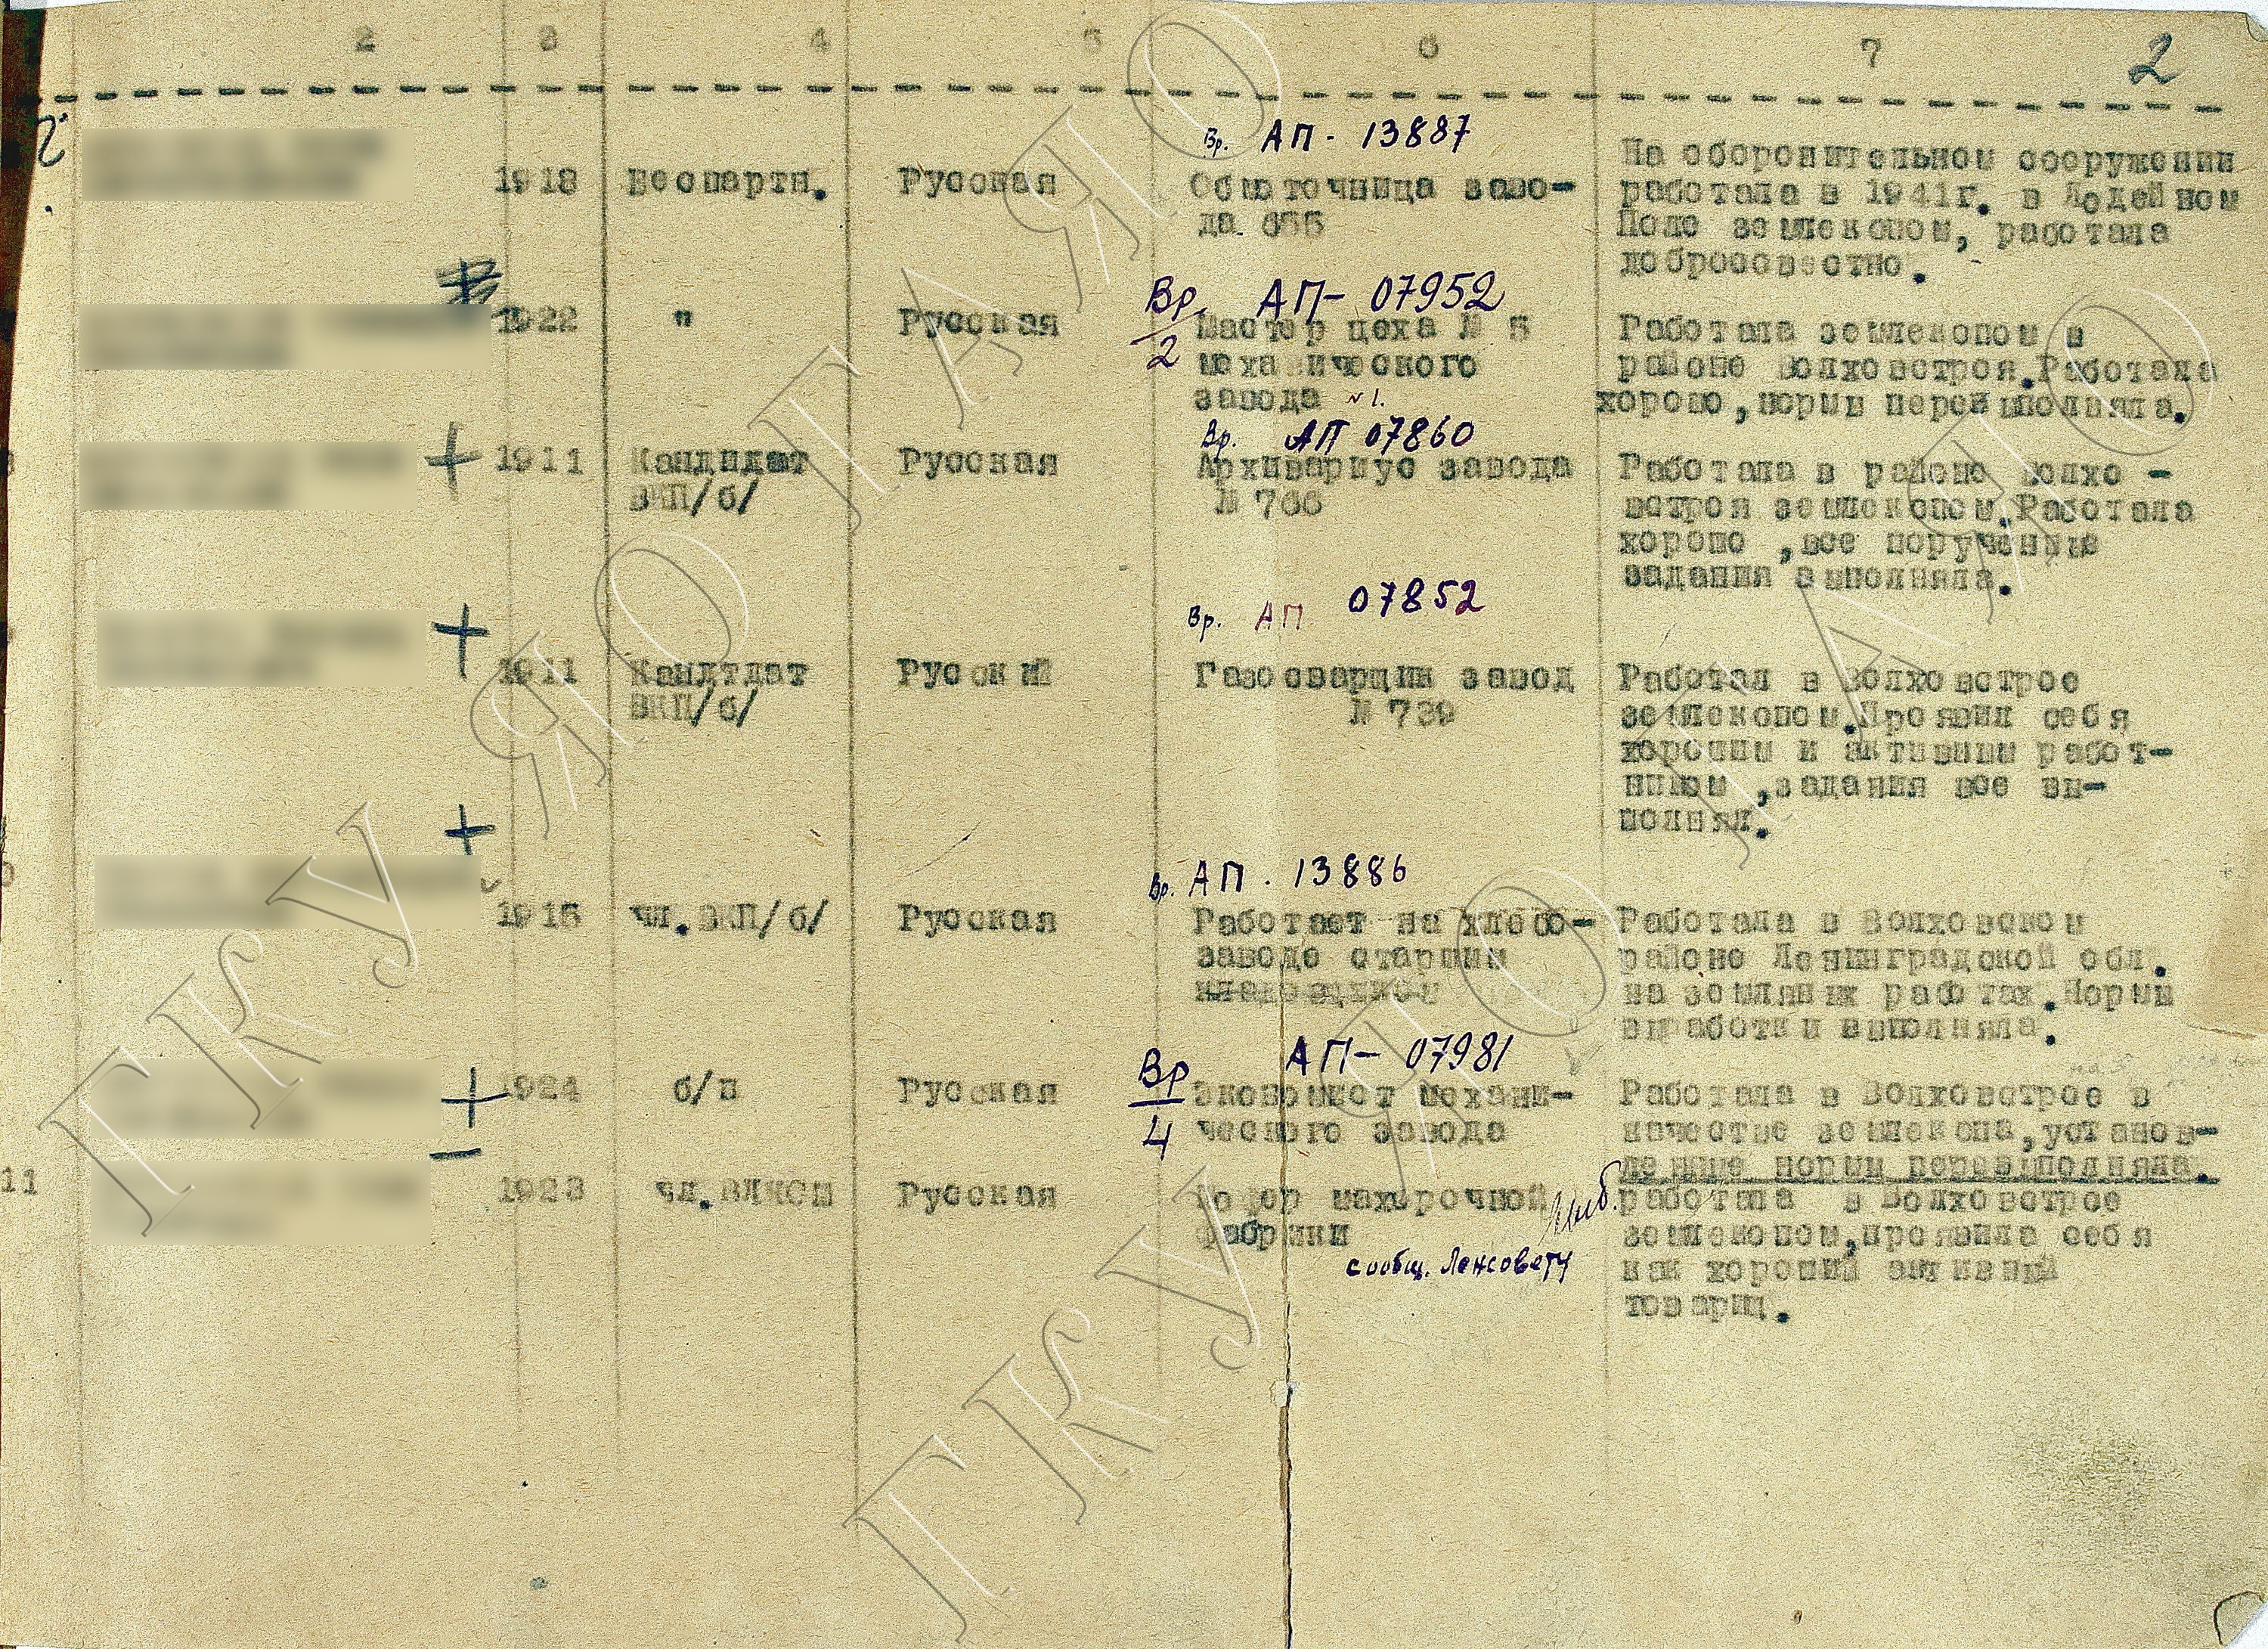 2 3 4 5 6 7 2
Вр. АП - 13887
1918 Беспартн. Русская Обмоточница заво-
да 655
На оборонительном сооружении
работала в 1941г. в Лодейном
Поле землекопом, работала
добросовестно.
Вр. АП- 07952
2
1922 " Русская Мастер цеха № 5
механического
завода №1.
Работала землекопом в
районе Волховстроя.Работала
хорошо,нормы перевыполняла.
Вр. АП 07860
+ 1911 Кандидат Русская Архивариус завода
ВКП/б/ № 766
Работала в районе Волхо -
встроя землекопом.Работала
хорошо ,все порученные
задания выполняла.
Вр. АП 07852
+
1911 Кандтдат Русский Газосварщик завод
ВКП/б/ № 739
Работал в Волховстрое
землекопом.Проявил себя
хорошим и активным работ-
ником ,задания все вы-
полнял.
+
Вр. АП . 13886
1915 чл.ВКП/б/ Русская Работает на хлебо-
заводе старшим
Работала в Волховском
районе Ленинградской обл.
на земляных работах.Нормы
выработки выполняла.
Вр АП- 07981
4
+ 1924 б/п Русская Экономист механи-
ческого завода
Работала в Волховстрое в
качестве землекопа,установ-
ленные нормы перевыполняла.
11 1923 чл.ВЛКСМ Русская махорочной
фабрики
сообщ. Ленсовету
работала в Волховстрое
землекопом,проявила себя
как хороший активный
товарищ.
ГКУ ЯО ГАЯО
ГКУ ЯО ГАЯО